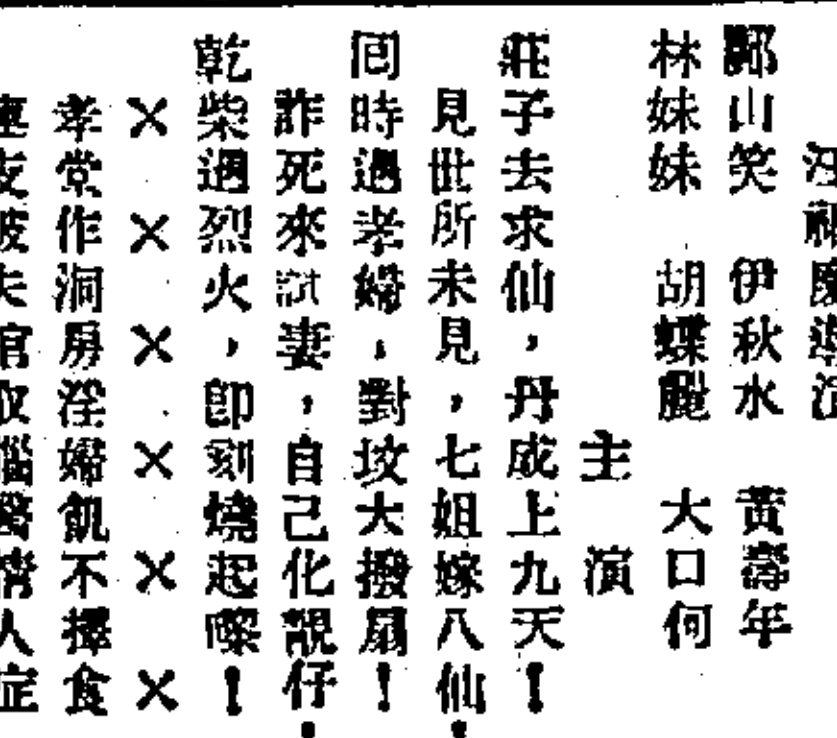 鄺山笑　伊秋水　黃壽年
林妹妹　胡蝶麗　大口何
主演
莊子去求仙，丹成上九天！
見世所未見，七姐嫁八仙！
同時遇孝婦，對坟大撥扇！
詐死來試妻，自己化靚仔！
乾柴遇烈火，即刻燒起嚟！
×　×　×　×　×　×
孝堂作洞房淫婦飢不擇食